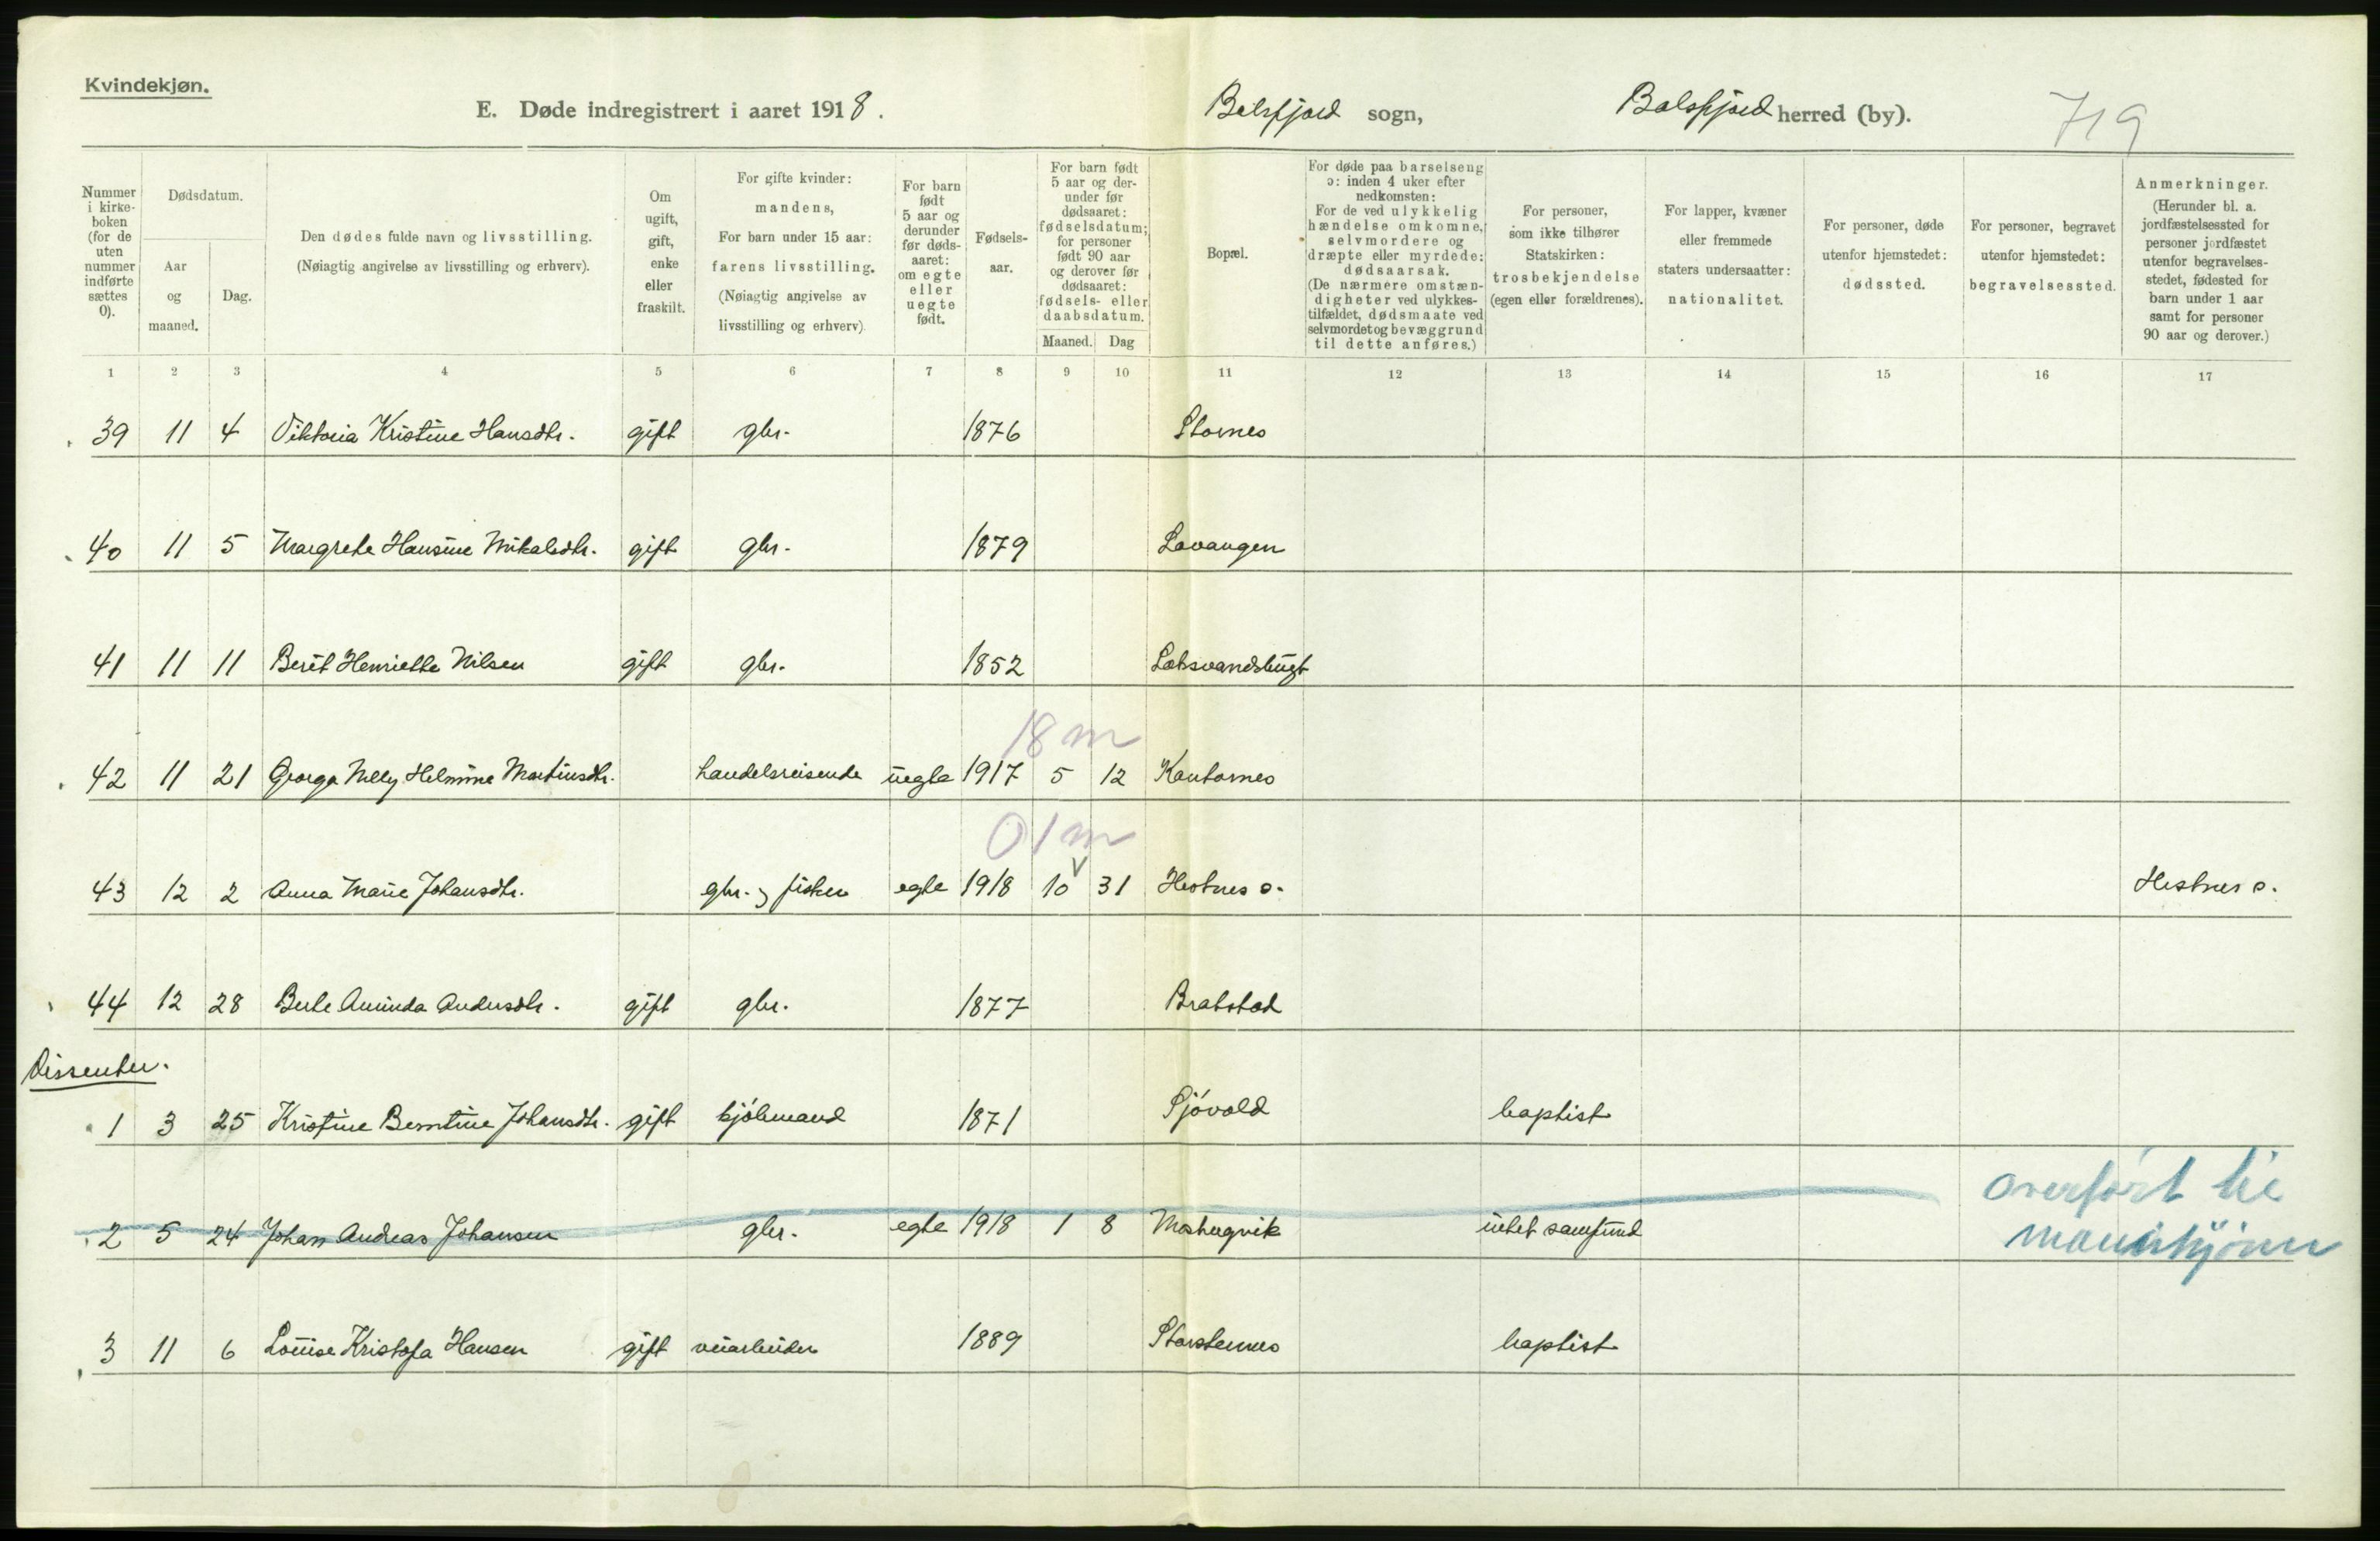 Kvindekjøn.
E. Døde indregistrert i aaret 1918.
Balsfjord sogn, Balsfjord herred (by). 719
Nummer i kirkeboken (for de uten nummer indførte sættes 0).
Dødsdatum.
Aar og maaned.
Dag.
Den dødes fulde navn og livsstilling.
(Nøiagtig angivelse av livsstilling og erhverv).
Om ugift, gift, enke eller fraskilt.
For gifte kvinder: mandens,
For barn under 15 aar: farens livsstilling.
(Nøiagtig angivelse av livsstilling og erhverv)
For barn født 5 aar og derunder før dødsaaret: om egte eller uegte født.
Fødselsaar.
For barn født 5 aar og derunder før dødsaaret: fødselsdatum; for personer født 90 aar og derover før dødsaaret: fødsels- eller daabsdatum.
Maaned. Dag
Bopæl.
For døde paa barselseng ɔ: inden 4 uker efter nedkomsten:
For de ved ulykkelig hændelse omkomne, selvmordere og dræpte eller myrdede: dødsaarsak.
(De nærmere omstændigheter ved ulykkestilfældet, dødsmaate ved selvmordet og bevæggrund til dette anføres.)
For personer, som ikke tilhører Statskirken: trosbekjendelse (egen eller forældrenes).
For lapper, kvæner eller fremmede staters undersaatter: nationalitet.
For personer, døde utenfor hjemstedet: dødssted.
For personer, begravet utenfor hjemstedet: begravelsessted.
Anmerkninger.
(Herunder bl. a. jordfæstelsessted for personer jordfæstet utenfor begravelsesstedet, fødested for barn under 1 aar samt for personer 90 aar og derover.)
1 2 3 4 5 6 7 8 9 10 11 12 13 14 15 16 17
39 11 4 Viktoria Kristine Hansdtr. gift gbr. 1876 Stornes
40 11 5 Margrete Hansine Mikalsdtr. gift gbr. 1879 Lavangen
41 11 11 Berit Henriette Nilsen gift gbr. 1852 Laksvandsbugt
18 m
42 11 21 Georga Nelly Helmine Martinsdtr. handelsreisende uegte 1917 5 12 Kantornes
0 1 m
43 12 2 Anna Marie Johansdtr. gbr. og fisker egte 1918 10 31 Hestnes ø. Hestnes ø.
44 12 28 Berte Aminda Andersdtr. gift gbr. 1877 Bratstad
Dissenter.
1 3 25 Kristine Berntine Johansdtr. gift kjöbmand 1871 Sjövold baptist
2 5 24 Johan Andreas Johansen gbr. egte 1918 1 8 Meshugvik intet samfund
overført til
mannkjønn
3 11 6 Louise Kristofa Hansen gift veiarbeider 1889 Storsteinnes baptist